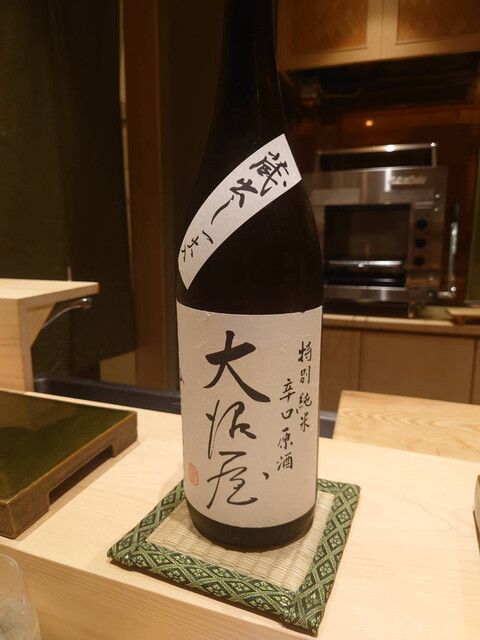 蔵出し一本
特別純米
辛口原酒
大沼屋